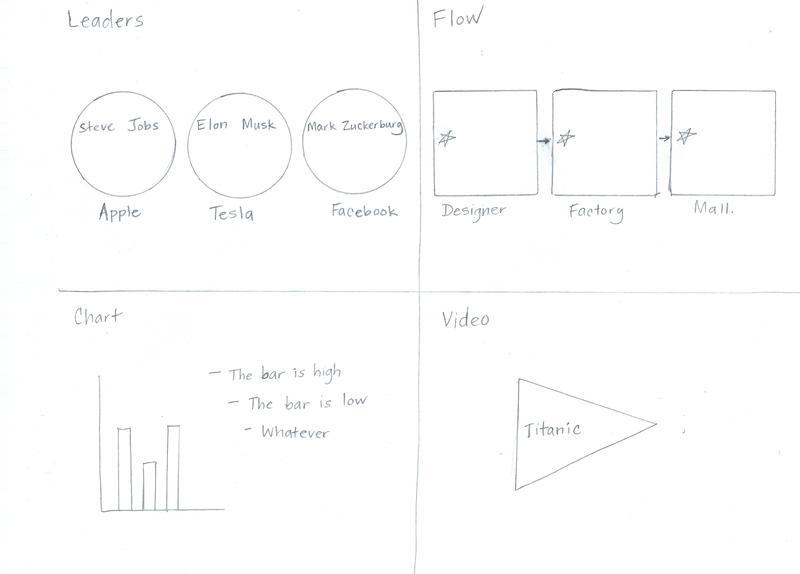 Leaders
Steve Jobs
Elon Musk
Mark Zuckerburg
Apple
Tesla
Facebook
Flow
Designer
Factory
Mall.
Chart
- The bar is high
- The bar is low
- Whatever
Video
Titanic